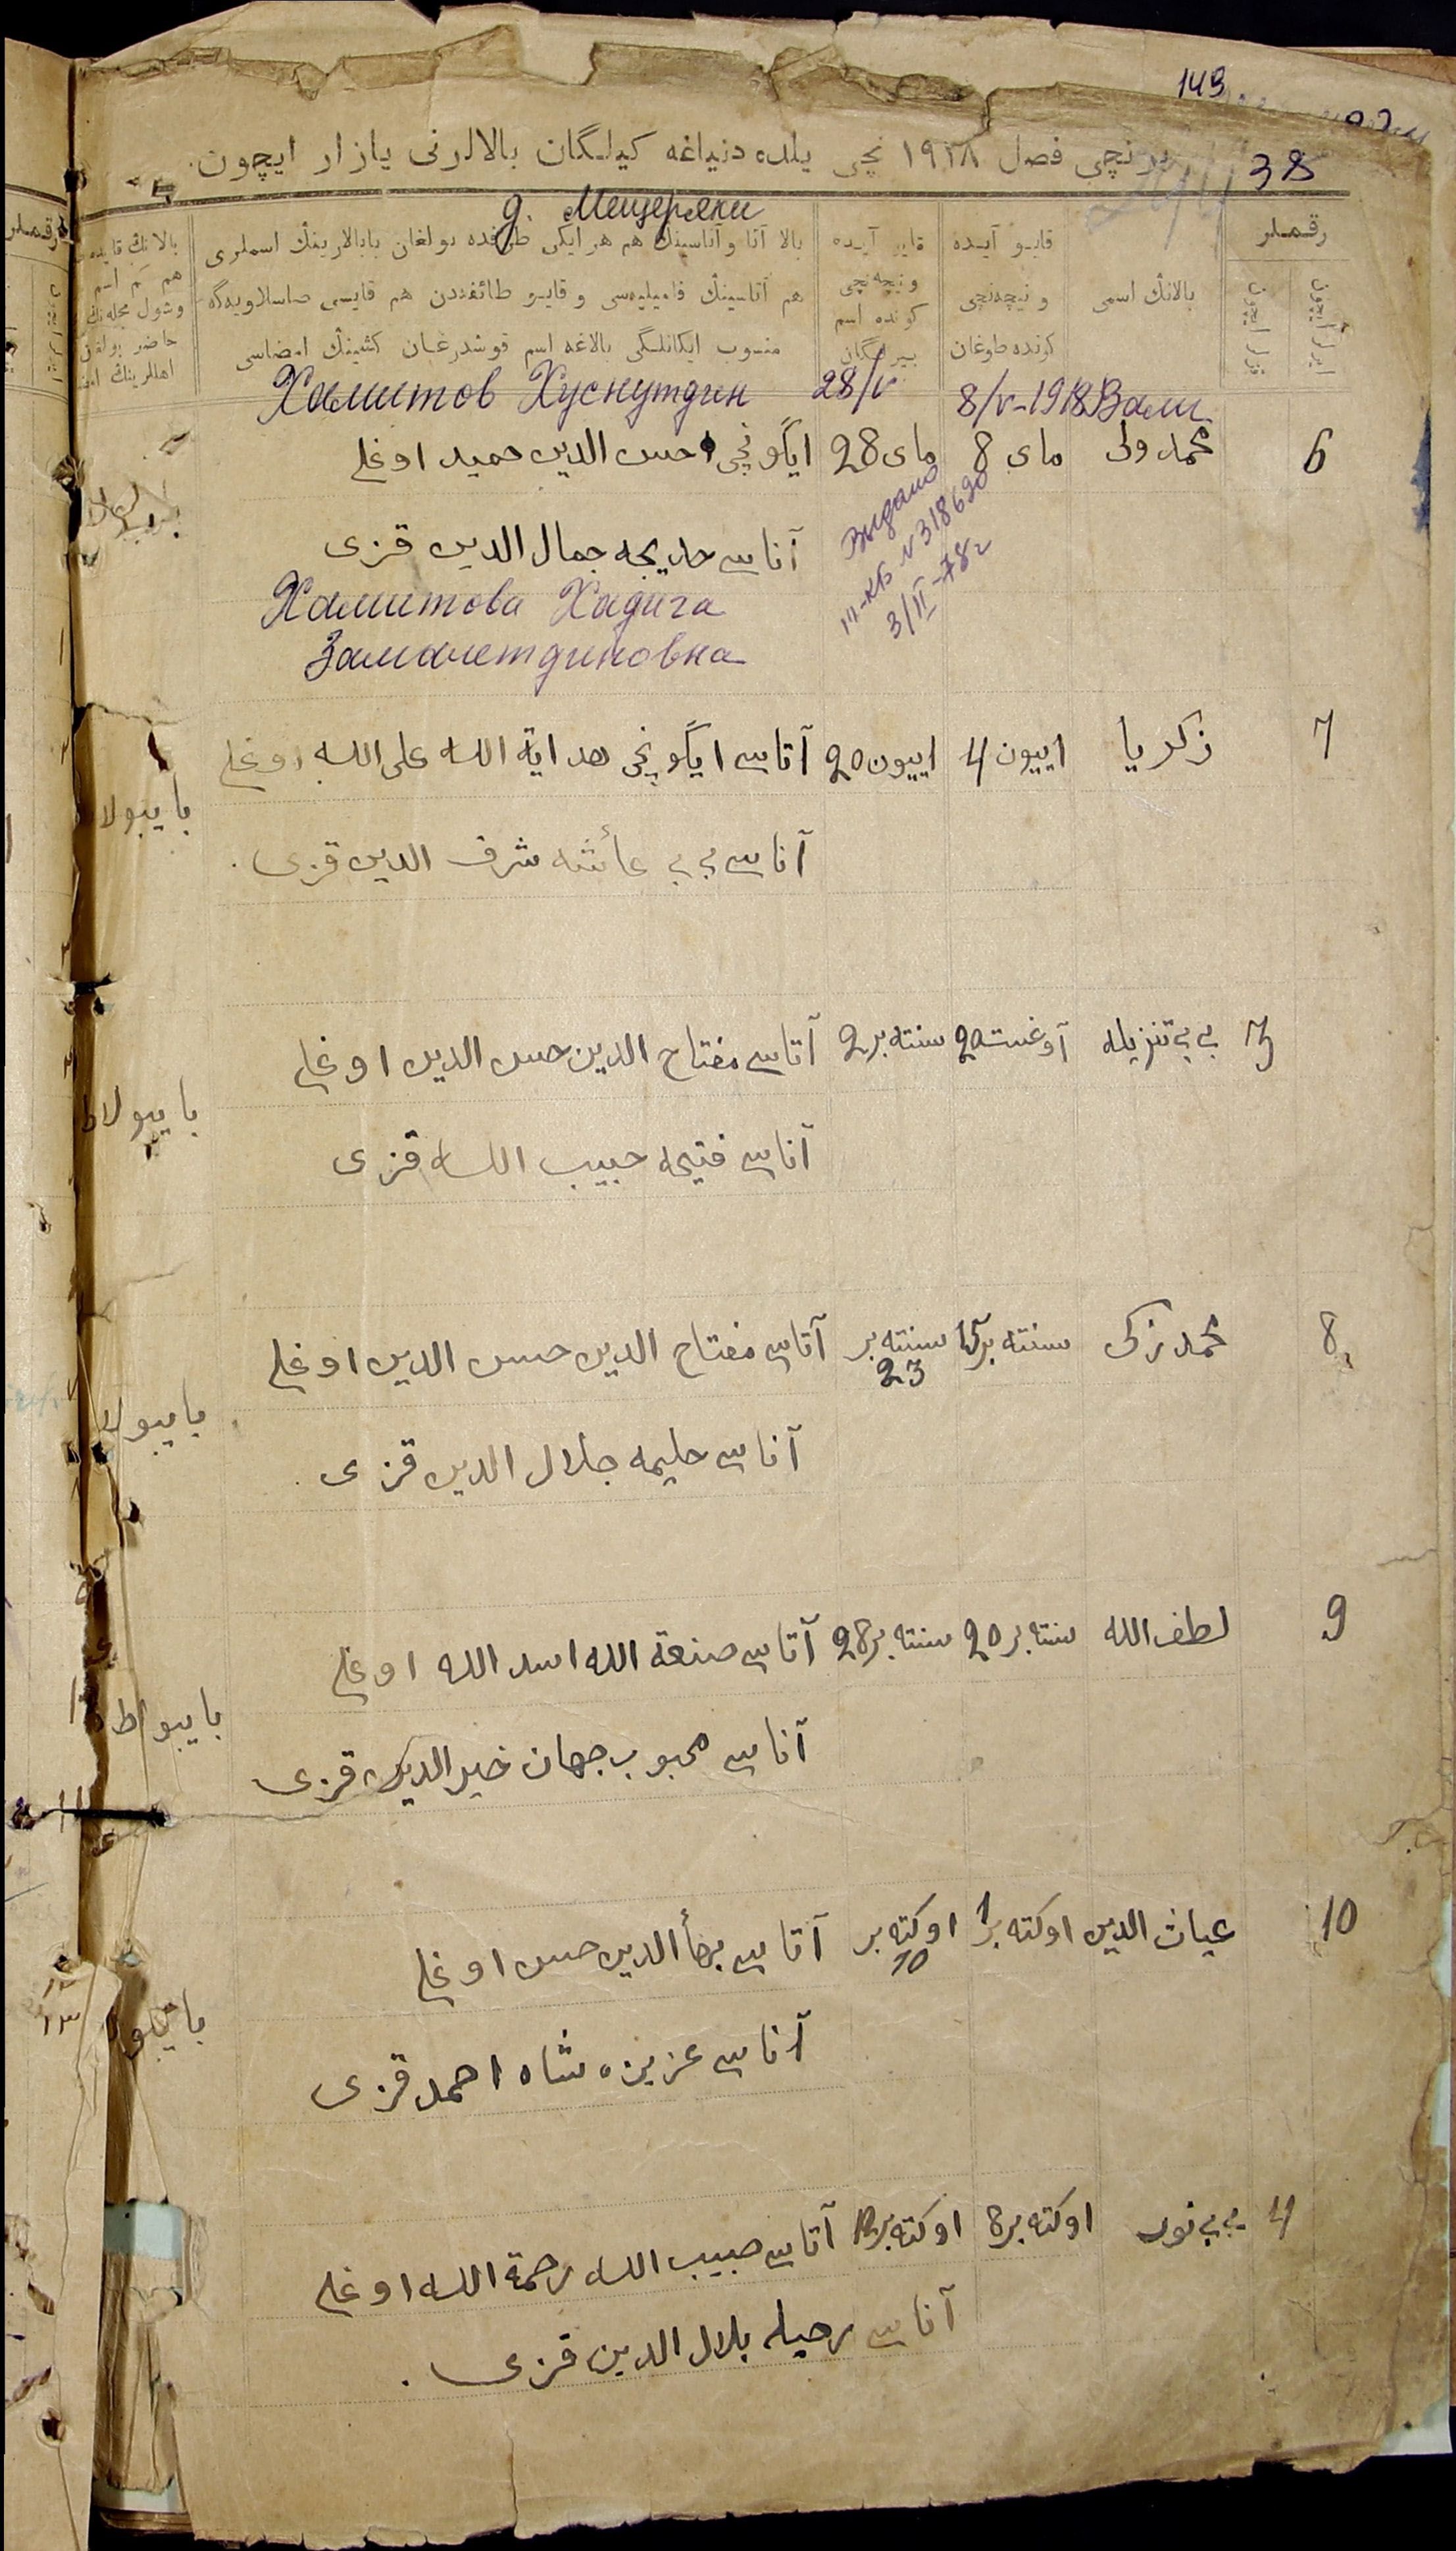 149
38
برنچی فصل ١٩١٨ نچی یلده دنیاغه کیلگان بالالرنی یازار ایچون
д. Мещеряки
رقملر
بالانڭ اسمی
قایو آیده
و نیچه‌نچی
کونده طوغان
قایو آیده
و نیچه‌نچی
کونده اسم
بیرلگان
بالا آتا و آناسینڭ هم هر ایکی طرفده بولغان بابالارینڭ اسملری
هم آتاسینڭ فامیلیه‌سی و قایو طائفه‌دن هم قایسی
منسوب ایکانلگی بالاغه اسم قوشدرغان کشینڭ امضاسی
Хамитов Хуснутдин 28/V 8/V-1918 Вали
6 محمد ولی مای 8 مای 28 ایگونچی حسن الدین حمید اوغلی
آناسی خدیجه جمال الدین قزی
Хамитова Хадича
Замалетдиновна
Выдано
III-КБ № 318690
3/II-78г
7 زکریا اییون 4 اییون 20 آتاسی ایگونچی هدایة الله علی الله اوغلی
آناسی بی بی عائشه شرف الدین قزی
3 بی بی تنزیله آوغست 20 سنته بر 2 آتاسی مفتاح الدین حسن الدین اوغلی
آناسی فتیحه حبیب الله قزی
بایبولاط
8 محمد زکی سنته بر 15 سنته بر 23 آتاسی مفتاح الدین حسن الدین اوغلی
آناسی حلیمه جلال الدین قزی
9 لطف الله سنته بر 20 سنته بر 28 آتاسی صنعة الله اسد الله اوغلی
آناسی محبوب جهان خیر الدین قزی
10 غیاث الدین اوکته بر 1 اوکته بر 10 آتاسی برهأ الدین حسن اوغلی
آناسی عزیزه شاه احمد قزی
4 بی بی نور اوکته بر 8 اوکته بر 12 آتاسی حبیب الله رحمة الله اوغلی
آناسی رحیله بلال الدین قزی